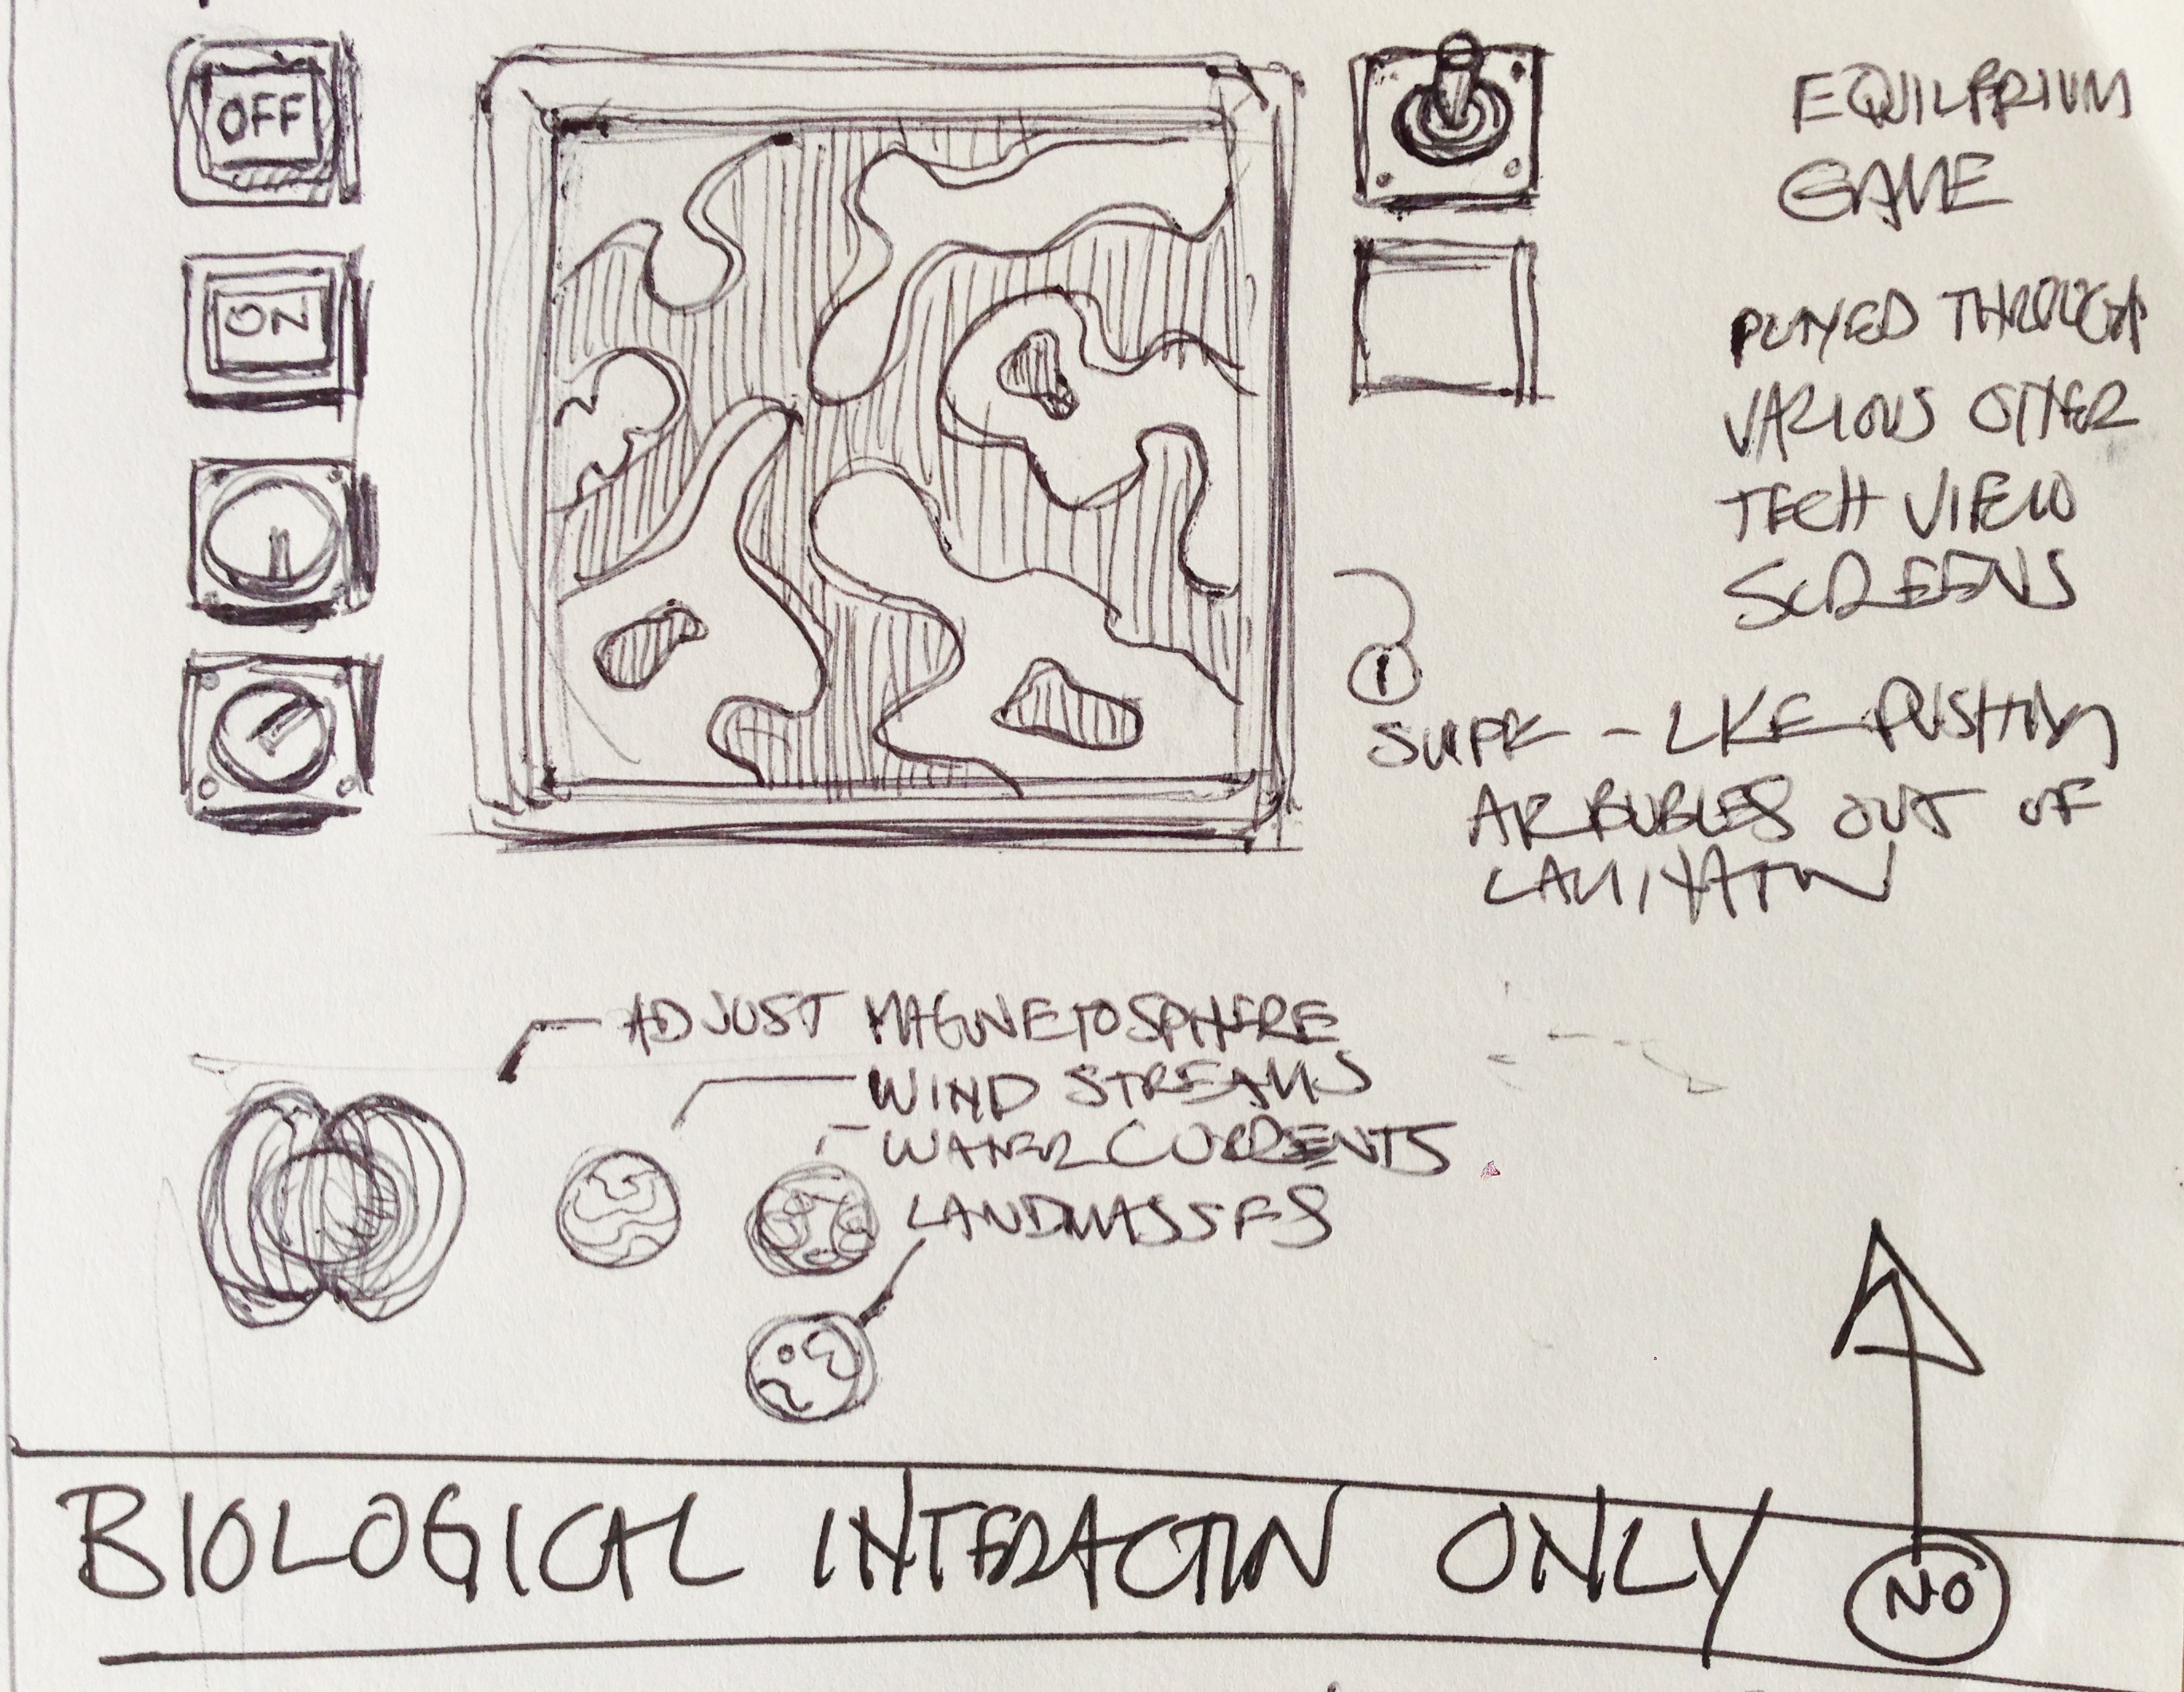 OFF
ON
EQUILIBRIUM
GAME
PLAYED THROUGH
VARIOUS OTHER
TECH VIEW
SCREENS
1
SWIPE - LIKE PUSHING
AIR BUBLES OUT OF
LAMINATION
ADJUST MAGNETOSPHERE
WIND STREAMS
WATER CURRENTS
LANDMASSES
BIOLOGICAL INTERACTION ONLY
NO